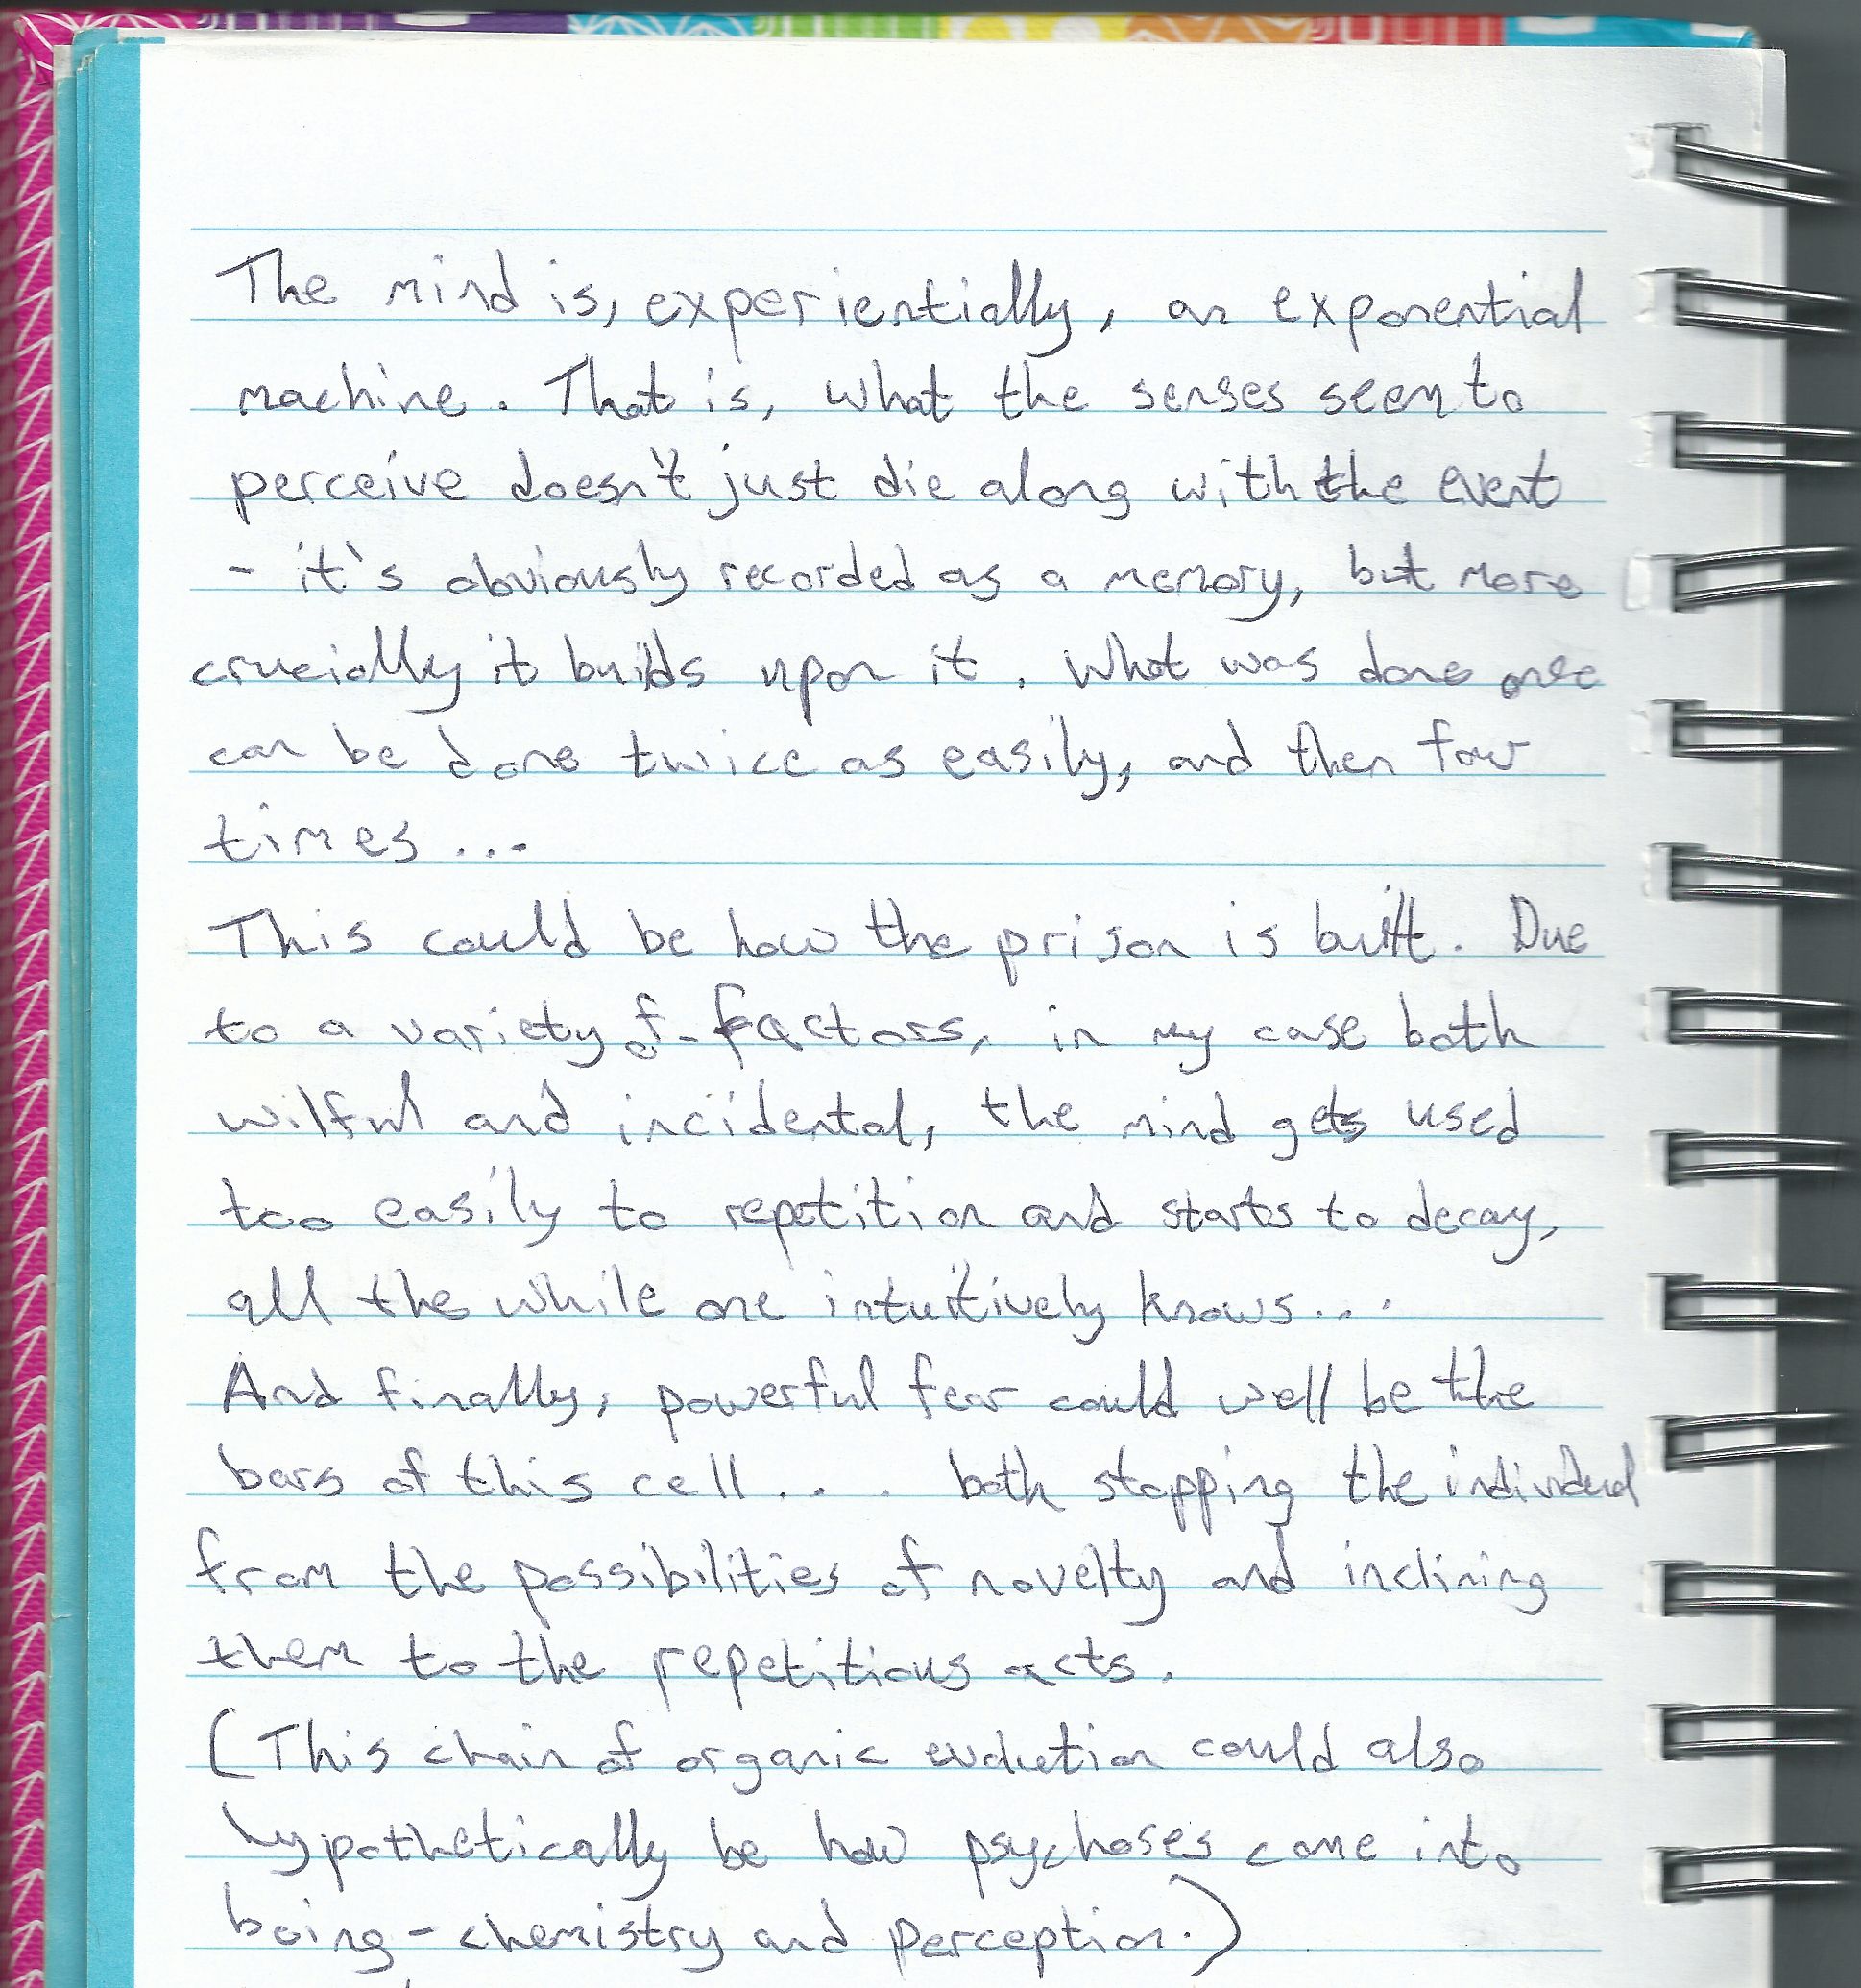 The mind is, experientially, an exponential
machine. That is, what the senses seem to
perceive doesn't just die along with the event
- it's obviously recorded as a memory, but more
crucially it builds upon it. What was done once
can be done twice as easily, and then four
times...
This could be how the prison is built. Due
to a variety of factors, in my case both
wilful and incidental, the mind gets used
too easily to repetition and starts to decay,
all the while one intuitively knows...
And finally, powerful fear could well be the
bars of this cell... both stopping the individual
from the possibilities of novelty and inclining
them to the repetitious acts.
(This chain of organic evolution could also
hypothetically be how psychoses come into
being - chemistry and perception.)